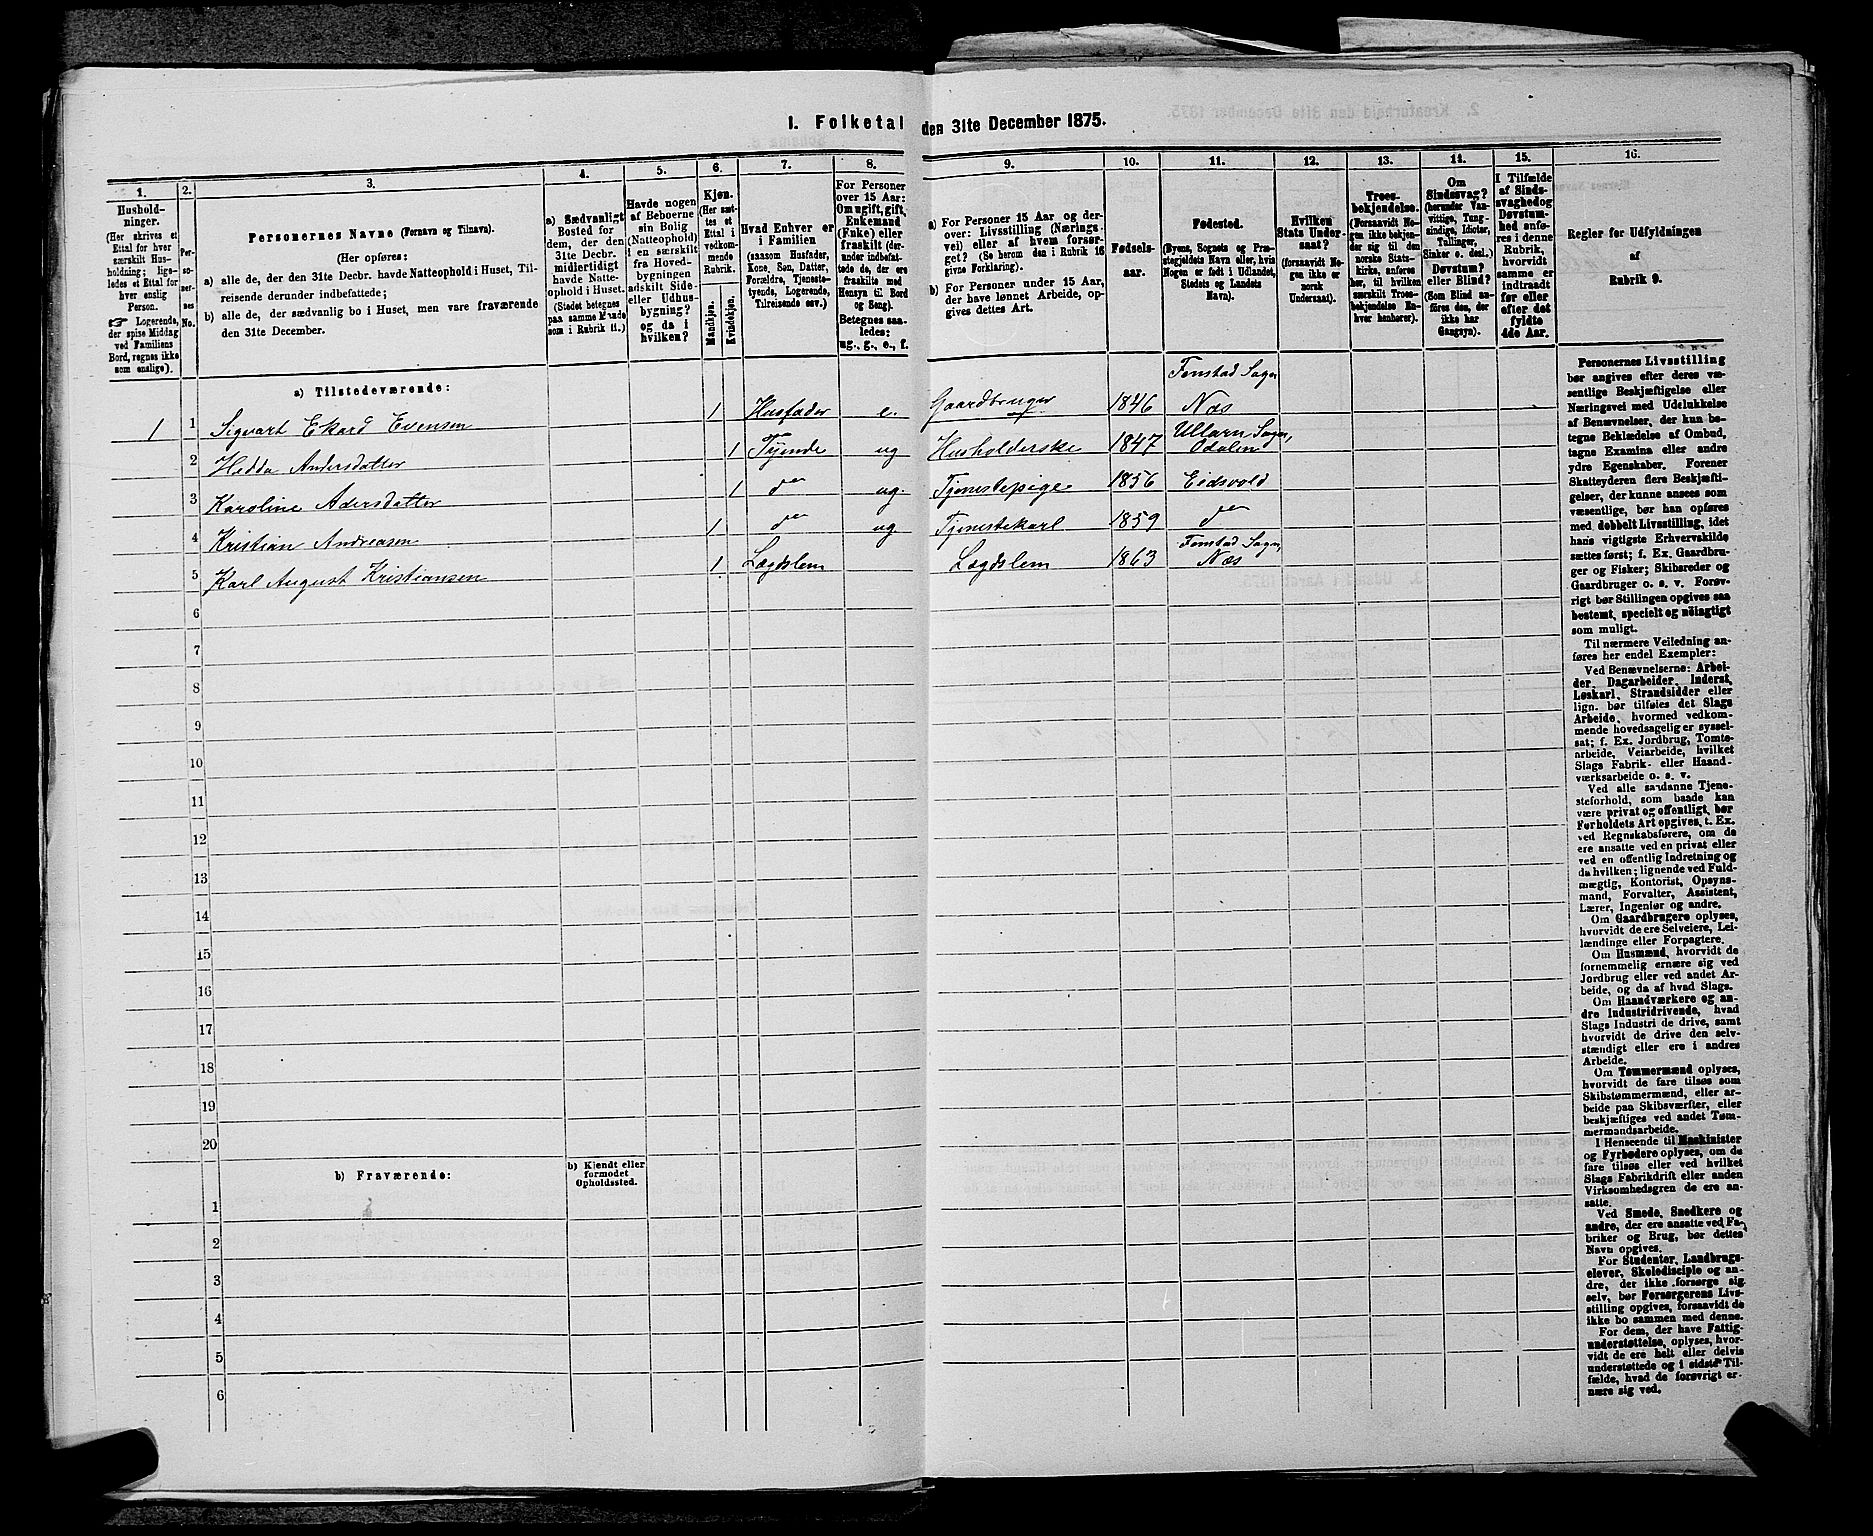 I. Folketal den 31te December 1875.
1. 2. 3. 4. 5. 6. 7. 8. 9. 10. 11. 12. 13. 14. 15. 16.
Hushold-
ninger.
(Her skrives et
Ettal for hver
særskilt Hus-
holdning; lige-
ledes et Ettal for
hver enslig
Person.
☞ Logerende,
der spise Middag
ved Familiens
Bord, regnes ikke
som enslige).
Per-
so-
ner-
nes
No.
Personernes Navne (Fornavn og Tilnavn).
(Her opføres:
a) alle de, der den 31te Decbr. havde Natteophold i Huset, Til-
reisende derunder indbefattede;
b) alle de, der sædvanlig bo i Huset, men vare fraværende
den 31te December.
a) Sædvanligt
Bosted for
dem, der den
31te Decbr.
midlertidigt
havde Natte-
ophold i Huset.
(Stedet betegnes
paa samme Maade
som i Rubrik 11.)
Havde nogen
af Beboerne
sin Bolig
(Natteophold)
i en særskilt
fra Hoved-
bygningen
adskilt Side-
eller Udhus-
bygning?
og da i
hvilken?
Kjøn.
(Her sæt-
tes et
Ettal i
vedkom-
mende
Rubrik.
Mandkjøn.
Kvindekjøn.
Hvad Enhver er
i Familien
(saasom Husfader,
Kone, Søn, Datter,
Forældre, Tjeneste-
tyende, Logerende,
Tilreisende osv.)
For Personer
over 15 Aar:
Om ugift, gift,
Enkemand
(Enke) eller
fraskilt (der-
under indbefat-
tede de, der ere
fraskilte med
Hensyn til Bord
og Seng).
Betegnes saa-
ledes:
ug., g., e., f.
a) For Personer 15 Aar og der-
over: Livsstilling (Nærings-
vei) eller af hvem forsør-
get? (Se herom den i Rubrik 16
givne Forklaring).
b) For Personer under 15 Aar,
der have lønnet Arbeide, op-
gives dettes Art.
Fødsels-
aar.
Fødested.
(Byens, Sognets og Præ-
stegjeldets Navn eller, hvis
Nogen er født i Udlandet,
Stedets og Landets
Navn).
Hvilken
Stats Under-
saat?
(forsaavidt No-
gen ikke er
norsk
Undersaat).
Troes-
bekjendelse.
(Forsaavidt No-
gen ikke bekjen-
der sig til den
norske Stats-
kirke, anføres
her, til hvilken
særskilt Troes-
bekjendelse En-
hver henhører).
Om
Sindssvag?
(herunder Van-
vittige, Tung-
sindige, Idioter,
Tullinger,
Sinker o. desl.)
Døvstum?
eller Blind?
(Som Blind an-
føres den, der
ikke har
Gangsyn).
I Tilfælde
af Sinds-
svaghed og
Døvstum-
hed anfø-
res i denne
Rubrik,
hvorvidt
samme er
indtraadt
før eller
efter det
fyldte
4de Aar.
Regler for Udfyldningen
af
Rubrik 9.
a) Tilstedeværende:
1 1 Sigvart Ekard Evensen 1 Husfader e. Gaardbruger 1846 Fenstad Sogn Næs
2 Hedda Andersdatter 1 Tyende ug Husholderske 1847 Ullern Sogn, Odalen
3 Karoline Adersdatter 1 do ug. Tjenestepige 1856 Eidsvold
4 Kristian Andreasen 1 do ug Tjenestekarl 1859 do
5 Karl August Kristiansen 1 Lægdslem Lægdslem 1863 Fenstad Sogn, Næs
6
7
8
9
10
11
12
13
14
15
16
17
18
19
20
b) Fraværende:
b) Kjendt eller
formodet
Opholdssted.
1
2
3
4
5
6
Personernes Livsstilling
bør angives efter deres væ-
sentlige Beskjæftigelse eller
Næringsvei med Udelukkelse
af Benævnelser, der kun be-
tegne Beklædelse af Ombud,
tagne Examina eller andre
ydre Egenskaber. Forener
Skatteyderen flere Beskjæfti-
gelser, der kunne ansees som
væsentlige, bør han opføres
med dobbelt Livsstilling, idet
hans vigtigste Erhvervskilde
sættes først; f. Ex. Gaardbru-
ger og Fisker; Skibsreder og
Gaardbruger o. s. v. Forøv-
rigt bør Stillingen opgives saa
bestemt, specielt og nöiagtigt
som muligt.
Til nærmere Veiledning an-
føres her endel Exempler:
Ved Benævnelserne: Arbei-
der, Dagarbeider, Inderst,
Løskarl, Strandsidder eller
lign. bør tilføies det Slags
Arbeide, hvormed vedkom-
mende hovedsagelig er syssel-
sat; f. Ex. Jordbrug, Tomte-
arbeide, Veiarbeide, hvilket
Slags Fabrik- eller Haand-
værksarbeide o. s. v.
Ved alle saadanne Tjene-
steforhold, som baade kan
være privat og offentligt, bør
Forholdets Art opgives, t. Ex.
ved Regnskabsførere, om de
ere ansatte ved en privat eller
ved en offentlig Indretning og
da hvilken; lignende ved Fuld-
mægtig, Kontorist, Opsyns-
mand, Forvalter, Assistent,
Lærer, Ingeniør og andre.
Om Gaardbrugere oplyses,
hvorvidt de ere Selveiere, Lei-
lændinge eller Forpagtere.
Om Husmænd, hvorvidt de
fornemmelig ernære sig ved
Jordbrug eller ved andet Ar-
beide, og da af hvad Slags.
Om Haandværkere og an-
dre Industridrivende, hvad
Slags Industri de drive, samt
hvorvidt de drive den selv-
stændigt eller ere i andres
Arbeide.
Om Tømmermænd oplyses,
hvorvidt de fare tilsøs som
Skibstømmermænd, eller ar-
beide paa Skibsværfter, eller
beskjæftiges ved andet Tøm-
mermandsarbeide.
I Henseende til Maskinister
og Fyrbødere oplyses, om de
fare tilsøs eller ved hvilket
Slags Fabrikdrift eller anden
Virksomhedsgren de ere an-
satte.
Ved Smede, Snedkere og
andre, der ere ansatte ved Fa-
briker og Brug, bør dettes
Navn opgives.
For Studenter, Landbrugs-
elever, Skoledisciple og an-
dre, der ikke forsørge sig
selv, bør Forsørgerens Livs-
stilling opgives, forsaavidt de
ikke bo sammen med denne.
For dem, der have Fattig-
understøttelse, oplyses, hvor-
vidt de ere helt eller delvis
understøttede og i sidste Til-
fælde, hvad de forøvrigt er-
nære sig ved.